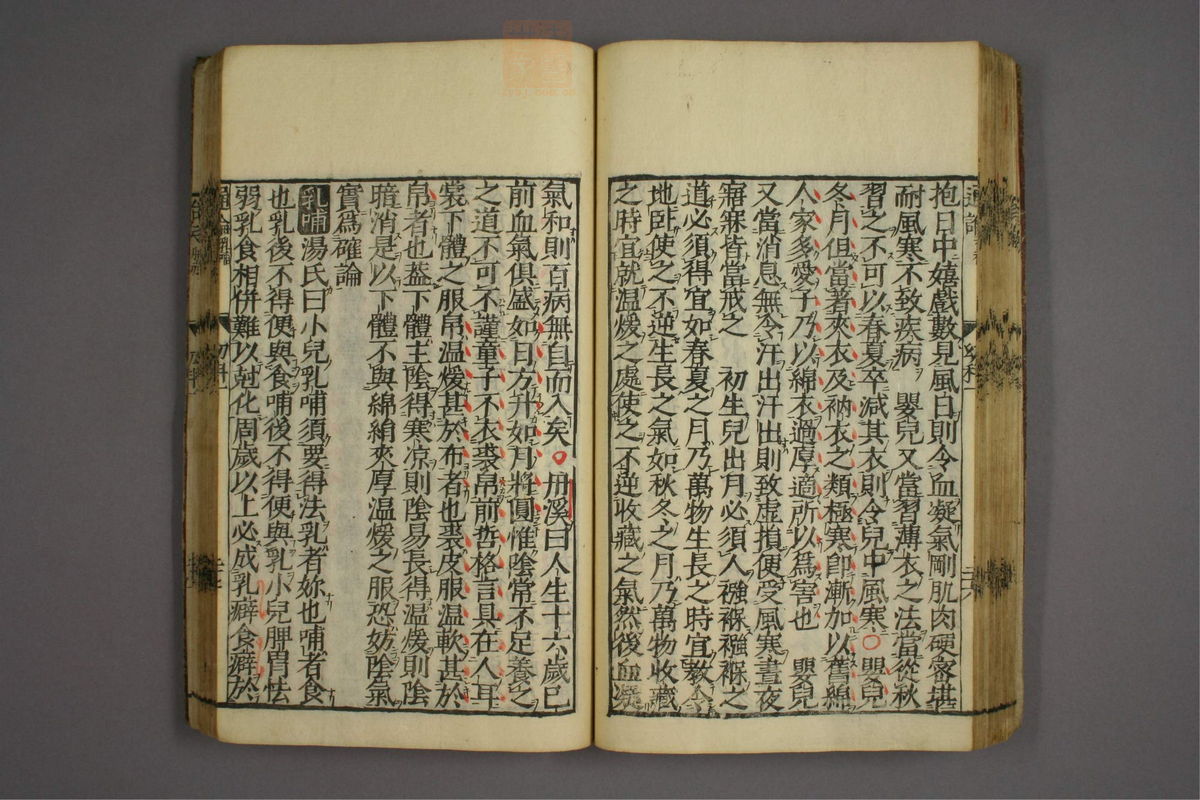 抱日中嬉戲數見風日則令血凝氣剛肌肉硬密堪
耐風寒不致疾病 嬰兒又當習薄衣之法當從秋
習之不可以春夏卒減其衣則令兒中風寒○嬰兒
冬月但當著夾衣及衲衣之類極寒卽漸加以舊綿
人家多愛子乃以綿衣過厚適所以爲害也 嬰兒
又當消息無令汗出汗出則致虛損便受風寒晝夜
寤寐皆當戒之 初生兒出月必須入襁褓襁褓之
道必須得宜如春夏之月乃萬物生長之時宜教令
地臥使之不逆生長之氣如秋冬之月乃萬物收藏
之時宜就温煖之處使之不逆收藏之氣然後血凝
氣和則百病無自而入矣○丹溪曰人生十六歲已
前血氣俱盛如日方升如月將圓惟陰常不足養之
之道不可不謹童子不衣裘帛前哲格言具在人耳
裳下體之服帛温煖甚於布者也裘皮服温軟甚於
帛者也蓋下體主陰得寒凉則陰易長得温煖則陰
暗消是以下體不與綿絹夾厚温煖之服恐妨陰氣
實爲確論
乳哺 湯氏曰小兒乳哺須要得法乳者妳也哺者食
也乳後不得便與食哺後不得便與乳小兒脾胃怯
弱乳食相併難以尅化周歲以上必成乳癖食癖於